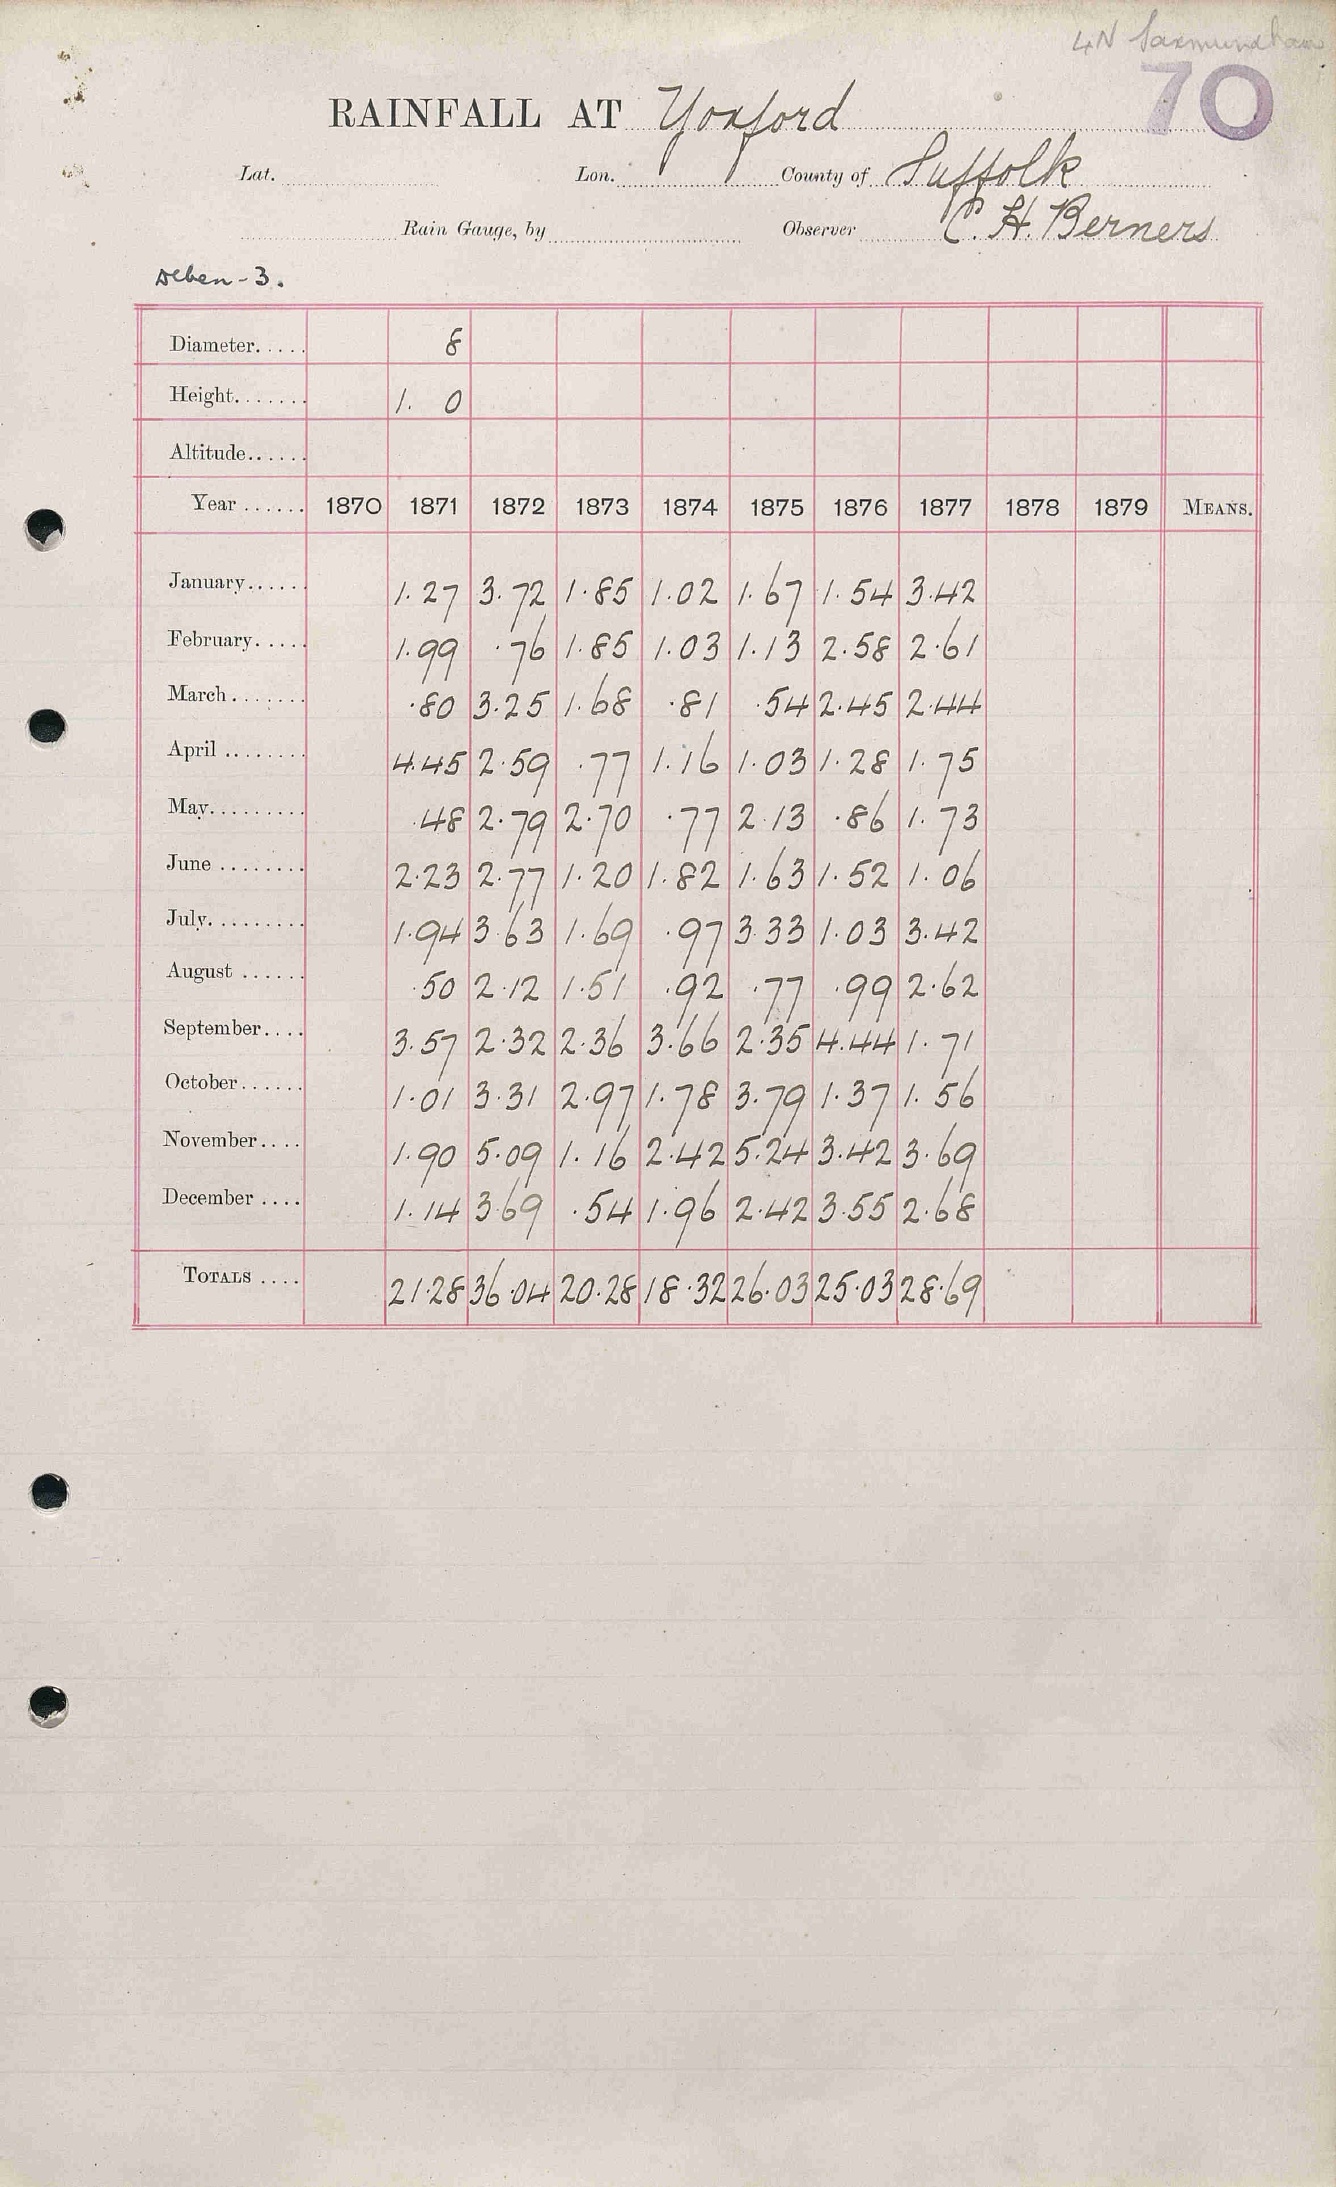 4N Saxmundham
70
RAINFALL AT Yoxford
Lat. Lon. County of Suffolk
Rain Gauge, by Observer C. H. Berners
Deben - 3.
Diameter..... 8
Height....... 1. 0
Altitude......
Year ...... 1870 1871 1872 1873 1874 1875 1876 1877 1878 1879 MEANS.
January...... 1.27 3.72 1.85 1.02 1.67 1.54 3.42
February..... 1.99 .76 1.85 1.03 1.13 2.58 2.61
March ....... .80 3.25 1.68 .81 .54 2.45 2.44
April ........ 4.45 2.59 .77 1.16 1.03 1.28 1.75
May......... .48 2.79 2.70 .77 2.13 .86 1.73
June ........ 2.23 2.77 1.20 1.82 1.63 1.52 1.06
July......... 1.94 3.63 1.69 .97 3.33 1.03 3.42
August ...... .50 2.12 1.51 .92 .77 .99 2.62
September.... 3.57 2.32 2.36 3.66 2.35 4.44 1.71
October...... 1.01 3.31 2.97 1.78 3.79 1.37 1.56
November.... 1.90 5.09 1.16 2.42 5.24 3.42 3.69
December .... 1.14 3.69 .54 1.96 2.42 3.55 2.68
TOTALS .... 21.28 36.04 20.28 18.32 26.03 25.03 28.69